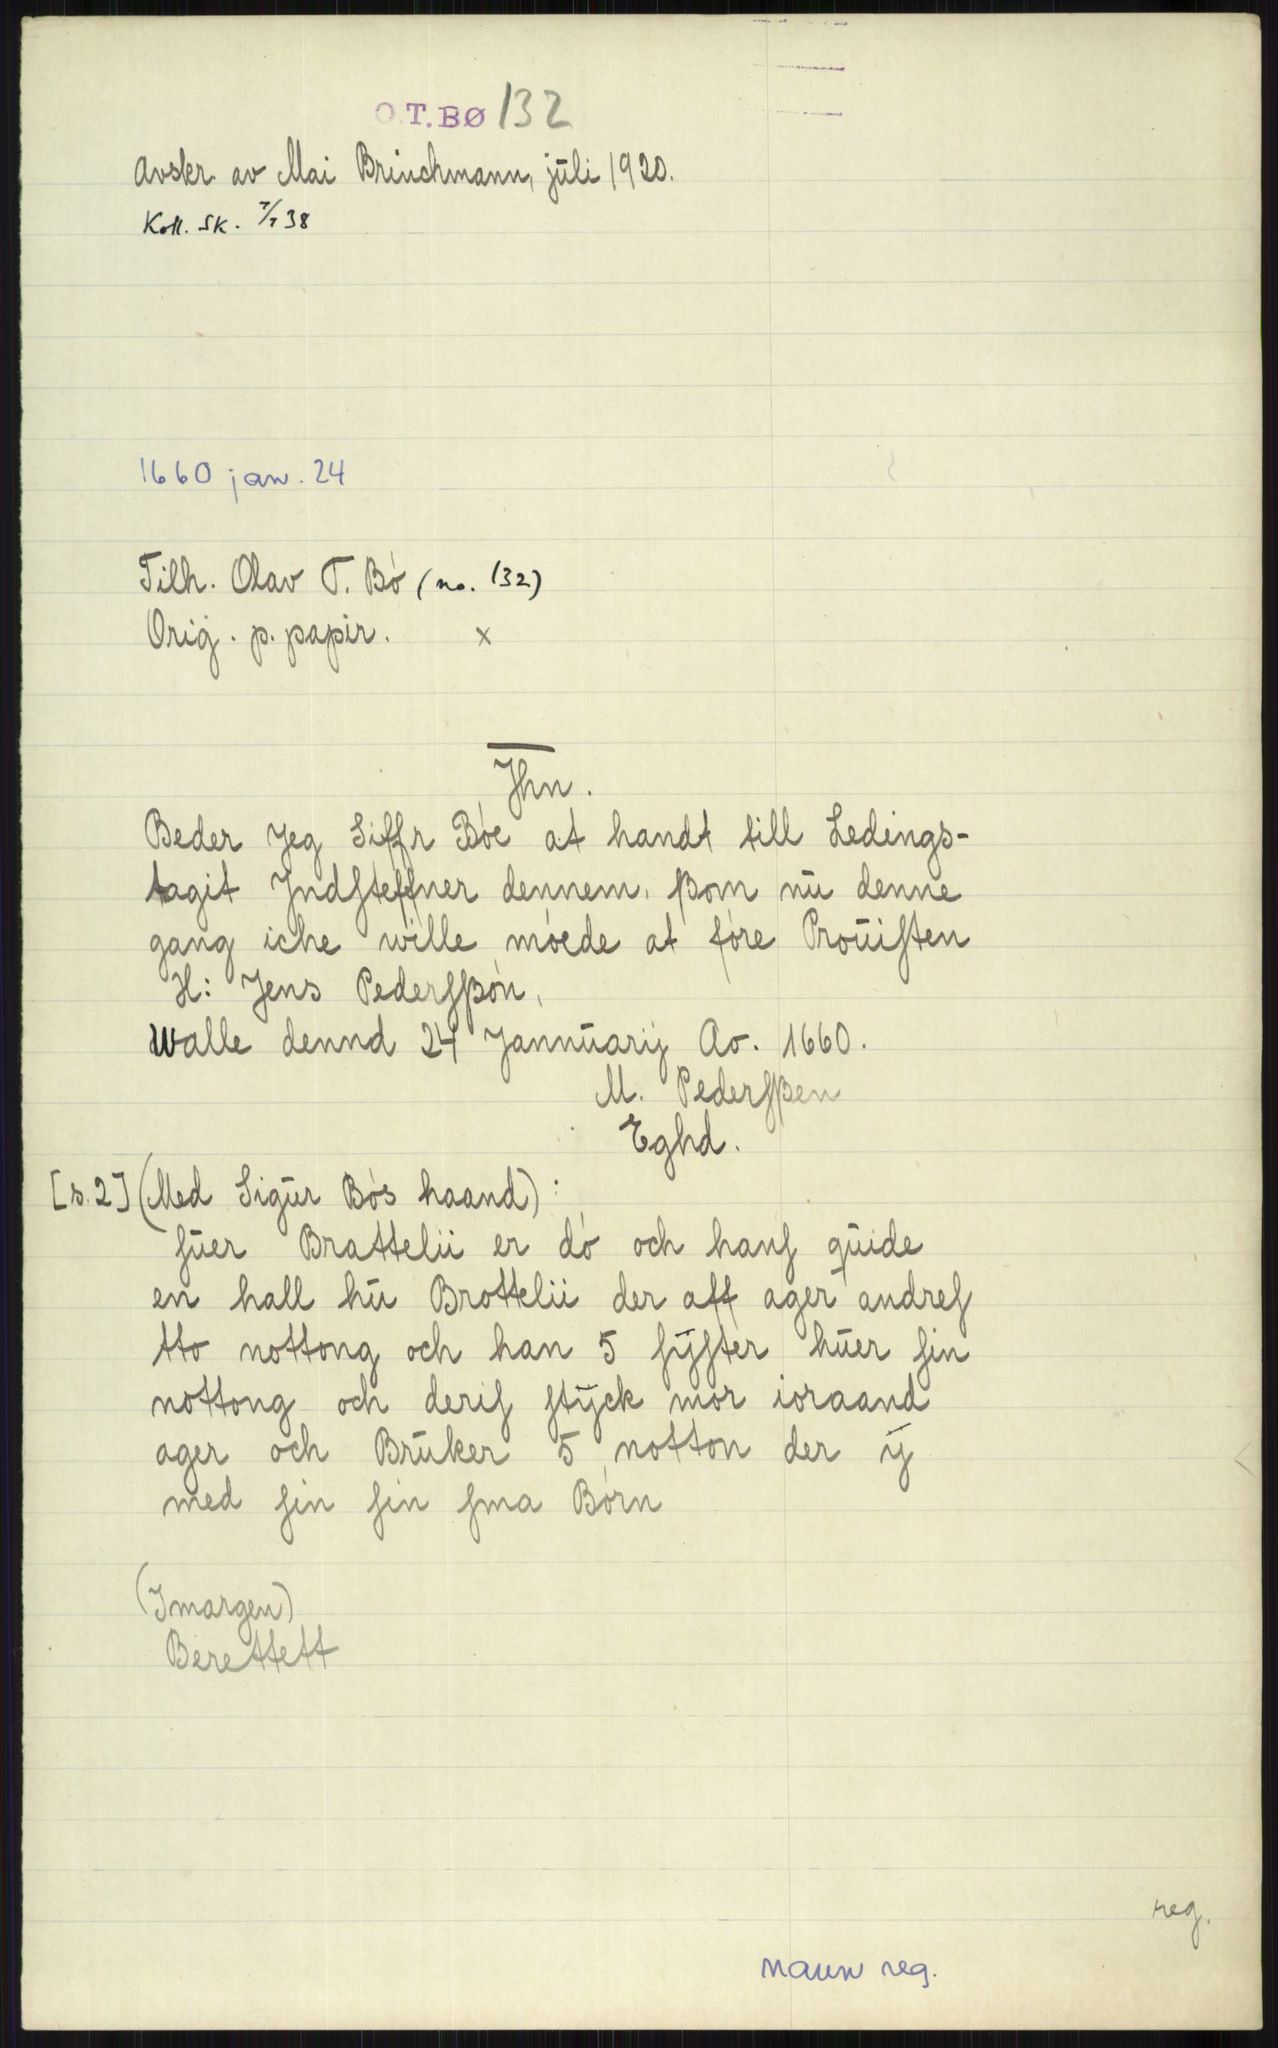 O.T.BØ 132
Avskr. av Mai Brinchmann, juli 1920.
Koll. SK. 7/7 38
1660 jan. 24
Tilh. Olav T. Bó (no. 132)
Orig. p. papir. x
Jhn.
Beder Jeg Siffr Bóe at handt till Ledings-
tagit Jndſteffner dennem, ßom nū denne
gang iche wille móede at fóre Proūiſten
H: Jens Pederſßón,
Walle dennd 24 Jannūarij Ao. 1660.
M. Pederſßen
Eghd.
[s. 2] (Med Sigūr Bós haand):
ſūer Brattelii er dó och hanſ qūide
en hall hū Brottelii der aff ager andreſ
tto nottong och han 5 ſÿſter hūer ſin
nottong och deriſ ſtÿck mor ioraand
ager och Brūker 5 notton der ij
med ſin ſin ſma Bórn
(I margen)
Berettett
reg.
navn reg.